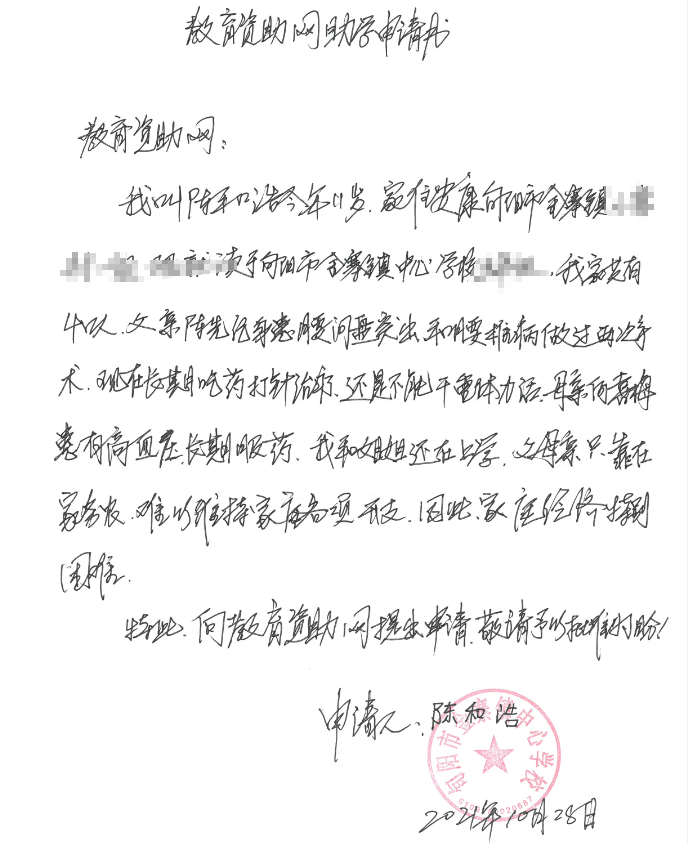 教育资助网助学申请书
教育资助网：
我叫陈和浩今年11岁.家住安康旬阳市金寨镇
就读于旬阳市金寨镇中心学校，我家共有
4口人.父亲陈先 身患腰间盘突出和腰椎病做过两次手
术.现在长期吃药打针治疗.还是不能干重体力活.母亲何喜梅
患有高血压长期服药.我和姐姐还在上学.父母亲只靠在
家务农.难以维持家庭各项开支.因此.家庭经济特别
困难.
特此.向教育资助网提出申请.敬请予以批准 盼!
申请人：陈和浩
旬阳市金寨镇中心学校
2021年10月28日